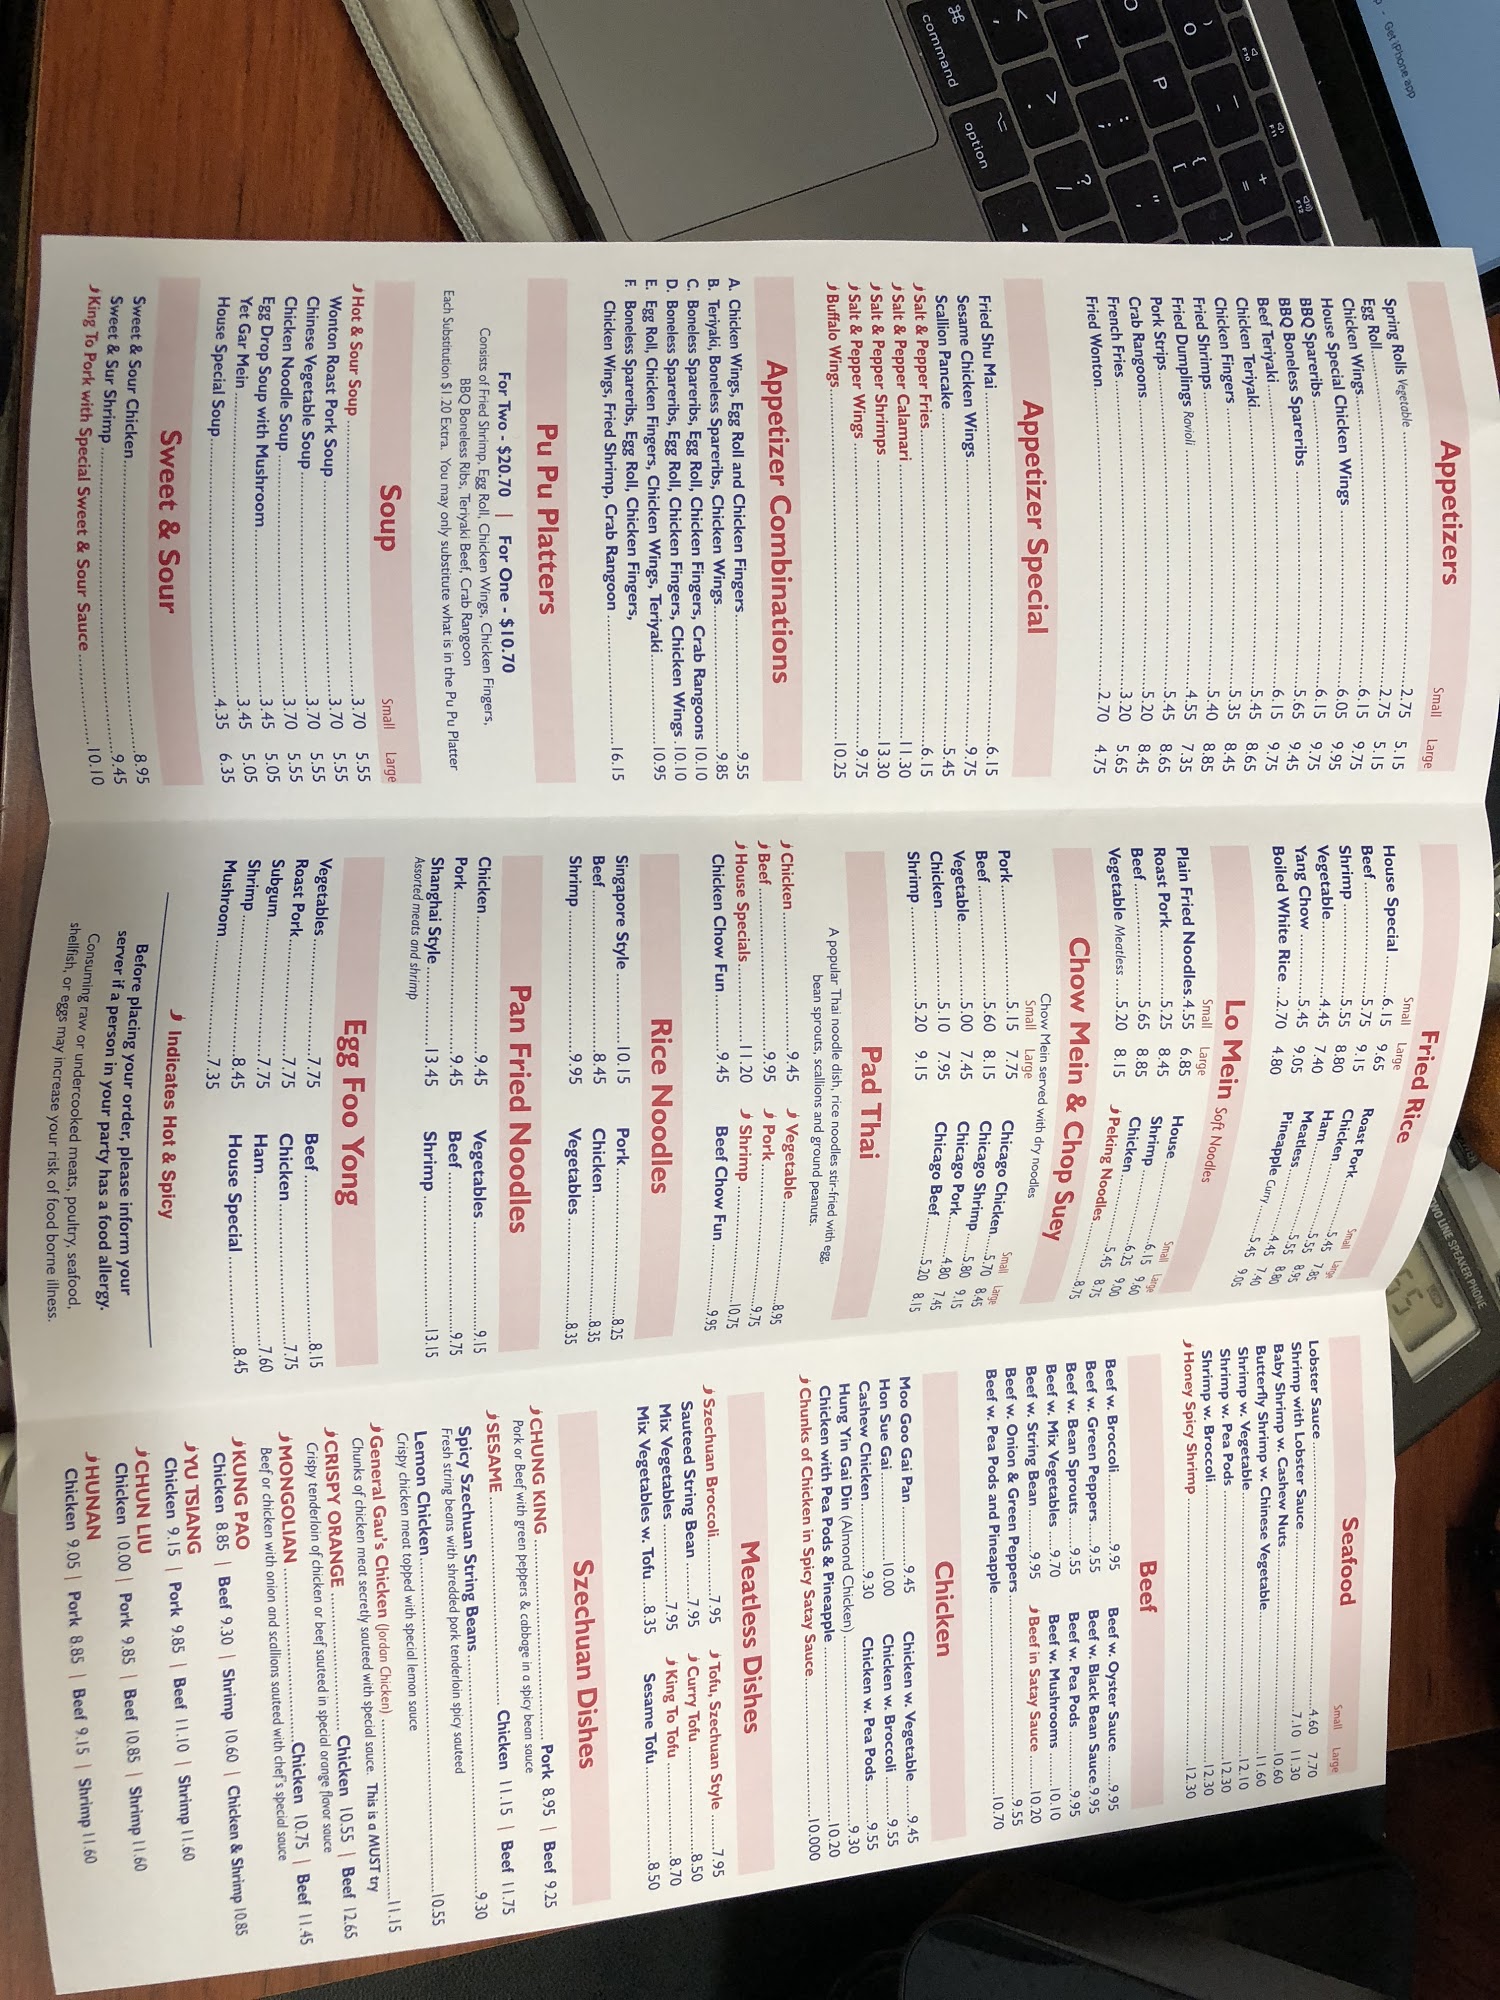 Appetizers
Small Large
Spring Rolls Vegetable ........ 2.75 5.15
Egg Roll ........ 2.75 5.15
Chicken Wings ........ 6.15 9.75
House Special Chicken Wings ........ 6.05 9.95
BBQ Spareribs ........ 6.15 9.75
BBQ Boneless Spareribs ........ 5.65 9.45
Beef Teriyaki ........ 6.15 9.75
Chicken Teriyaki ........ 5.45 8.65
Chicken Fingers ........ 5.35 8.45
Fried Shrimps ........ 5.40 8.85
Fried Dumplings Ravioli ........ 4.55 7.35
Pork Strips ........ 5.45 8.65
Crab Rangoons ........ 5.20 8.45
French Fries ........ 3.20 5.65
Fried Wonton ........ 2.70 4.75
Appetizer Special
Fried Shu Mai ........ 6.15
Sesame Chicken Wings ........ 9.75
Scallion Pancake ........ 5.45
Salt & Pepper Fries ........ 6.15
Salt & Pepper Calamari ........ 11.30
Salt & Pepper Shrimps ........ 13.30
Salt & Pepper Wings ........ 9.75
Buffalo Wings ........ 10.25
Appetizer Combinations
A. Chicken Wings, Egg Roll and Chicken Fingers ........ 9.55
B. Teriyaki, Boneless Spareribs, Chicken Wings ........ 9.85
C. Boneless Spareribs, Egg Roll, Chicken Fingers, Crab Rangoons 10.10
D. Boneless Spareribs, Egg Roll, Chicken Fingers, Chicken Wings . 10.10
E. Egg Roll, Chicken Fingers, Chicken Wings, Teriyaki ........ 10.95
F. Boneless Spareribs, Egg Roll, Chicken Fingers,
Chicken Wings, Fried Shrimp, Crab Rangoon ........ 16.15
Pu Pu Platters
For Two - $20.70 | For One - $10.70
Consists of Fried Shrimp, Egg Roll, Chicken Wings, Chicken Fingers,
BBQ Boneless Ribs, Teriyaki Beef, Crab Rangoon
Each Substitution $1.20 Extra. You may only substitute what is in the Pu Pu Platter
Soup
Small Large
Hot & Sour Soup ........ 3.70 5.55
Wonton Roast Pork Soup ........ 3.70 5.55
Chinese Vegetable Soup ........ 3.70 5.55
Chicken Noodle Soup ........ 3.70 5.55
Egg Drop Soup with Mushroom ........ 3.45 5.05
Yet Gar Mein ........ 3.45 5.05
House Special Soup ........ 4.35 6.35
Sweet & Sour
Sweet & Sour Chicken ........ 8.95
Sweet & Sur Shrimp ........ 9.45
King To Pork with Special Sweet & Sour Sauce ........ 10.10
Fried Rice
Small Large Small Large
House Special ...... 6.15 9.65 Roast Pork ...... 5.45 7.85
Beef ...... 5.75 9.15 Chicken ...... 5.55 8.95
Shrimp ...... 5.55 8.80 Ham ...... 5.55 8.80
Vegetable ...... 4.45 7.40 Meatless ...... 4.45 7.40
Yang Chow ...... 5.45 9.05 Pineapple Curry ...... 5.45 9.05
Boiled White Rice .. 2.70 4.80
Lo Mein Soft Noodles
Small Large Small Large
Plain Fried Noodles. 4.55 6.85 House ...... 6.15 9.60
Roast Pork ...... 5.25 8.45 Shrimp ...... 6.25 9.00
Beef ...... 5.65 8.85 Chicken ...... 5.45 8.75
Vegetable Meatless ... 5.20 8.15 Peking Noodles ...... 8.75
Chow Mein & Chop Suey
Chow Mein served with dry noodles
Small Large Small Large
Pork ...... 5.15 7.75 Chicago Chicken ... 5.70 8.45
Beef ...... 5.60 8.15 Chicago Shrimp ... 5.80 9.15
Vegetable ...... 5.00 7.45 Chicago Pork ...... 4.80 7.45
Chicken ...... 5.10 7.95 Chicago Beef ...... 5.20 8.15
Shrimp ...... 5.20 9.15
Pad Thai
A popular Thai noodle dish, rice noodles stir-fried with egg,
bean sprouts, scallions and ground peanuts.
Chicken ...... 9.45 Vegetable ...... 8.95
Beef ...... 9.95 Pork ...... 9.75
House Specials ...... 11.20 Shrimp ...... 10.75
Chicken Chow Fun ...... 9.45 Beef Chow Fun ...... 9.95
Rice Noodles
Singapore Style ...... 10.15 Pork ...... 8.25
Beef ...... 8.45 Chicken ...... 8.35
Shrimp ...... 9.95 Vegetables ...... 8.35
Pan Fried Noodles
Chicken ...... 9.45 Vegetables ...... 9.15
Pork ...... 9.45 Beef ...... 9.75
Shanghai Style ...... 13.45 Shrimp ...... 13.15
Assorted meats and shrimp
Egg Foo Yong
Vegetables ...... 7.75 Beef ...... 8.15
Roast Pork ...... 7.75 Chicken ...... 7.75
Subgum ...... 7.75 Ham ...... 7.60
Shrimp ...... 8.45 House Special ...... 8.45
Mushroom ...... 7.35
Indicates Hot & Spicy
Before placing your order, please inform your
server if a person in your party has a food allergy.
Consuming raw or undercooked meats, poultry, seafood,
shellfish, or eggs may increase your risk of food borne illness.
Seafood
Small Large
Lobster Sauce ........ 4.60 7.70
Shrimp with Lobster Sauce ........ 7.10 11.30
Baby Shrimp w. Cashew Nuts ........ 10.60
Butterfly Shrimp w. Chinese Vegetable ........ 11.60
Shrimp w. Vegetable ........ 12.10
Shrimp w. Pea Pods ........ 12.30
Shrimp w. Broccoli ........ 12.30
Honey Spicy Shrimp ........ 12.30
Beef
Beef w. Broccoli ...... 9.95 Beef w. Oyster Sauce ...... 9.95
Beef w. Green Peppers ... 9.55 Beef w. Black Bean Sauce. 9.95
Beef w. Bean Sprouts ..... 9.55 Beef w. Pea Pods ...... 9.95
Beef w. Mix Vegetables ... 9.70 Beef w. Mushrooms ...... 10.10
Beef w. String Bean ...... 9.95 Beef in Satay Sauce ...... 10.20
Beef w. Onion & Green Peppers ........ 9.55
Beef w. Pea Pods and Pineapple ........ 10.70
Chicken
Moo Goo Gai Pan ...... 9.45 Chicken w. Vegetable ...... 9.45
Hon Sue Gai ...... 10.00 Chicken w. Broccoli ...... 9.55
Cashew Chicken ...... 9.30 Chicken w. Pea Pods ...... 9.55
Hung Yin Gai Din (Almond Chicken) ........ 9.30
Chicken with Pea Pods & Pineapple ........ 10.20
Chunks of Chicken in Spicy Satay Sauce ........ 10.000
Meatless Dishes
Szechuan Broccoli ...... 7.95 Tofu, Szechuan Style ...... 7.95
Sauteed String Bean ...... 7.95 Curry Tofu ...... 8.50
Mix Vegetables ...... 7.95 King To Tofu ...... 8.70
Mix Vegetables w. Tofu ..... 8.35 Sesame Tofu ...... 8.50
Szechuan Dishes
CHUNG KING ........ Pork 8.95 | Beef 9.25
Pork or Beef with green peppers & cabbage in a spicy bean sauce
SESAME ........ Chicken 11.15 | Beef 11.75
Spicy Szechuan String Beans ........ 9.30
Fresh string beans with shredded pork tenderloin spicy sauteed
Lemon Chicken ........ 10.55
Crispy chicken meat topped with special lemon sauce
General Gau's Chicken (Jordan Chicken) ........ 11.15
Chunks of chicken meat secretly sauteed with special sauce. This is a MUST try
CRISPY ORANGE ........ Chicken 10.55 | Beef 12.65
Crispy tenderloin of chicken or beef sauteed in special orange flavor sauce
MONGOLIAN ........ Chicken 10.75 | Beef 11.45
Beef or chicken with onion and scallions sauteed with chef's special sauce
KUNG PAO
Chicken 8.85 | Beef 9.30 | Shrimp 10.60 | Chicken & Shrimp 10.85
YU TSIANG
Chicken 9.15 | Pork 9.85 | Beef 11.10 | Shrimp 11.60
CHUN LIU
Chicken 10.00 | Pork 9.85 | Beef 10.85 | Shrimp 11.60
HUNAN
Chicken 9.05 | Pork 8.85 | Beef 9.15 | Shrimp 11.60
Get iPhone app
command
option
O
P
L
F10
F11
F12
TWO LINE SPEAKER PHONE